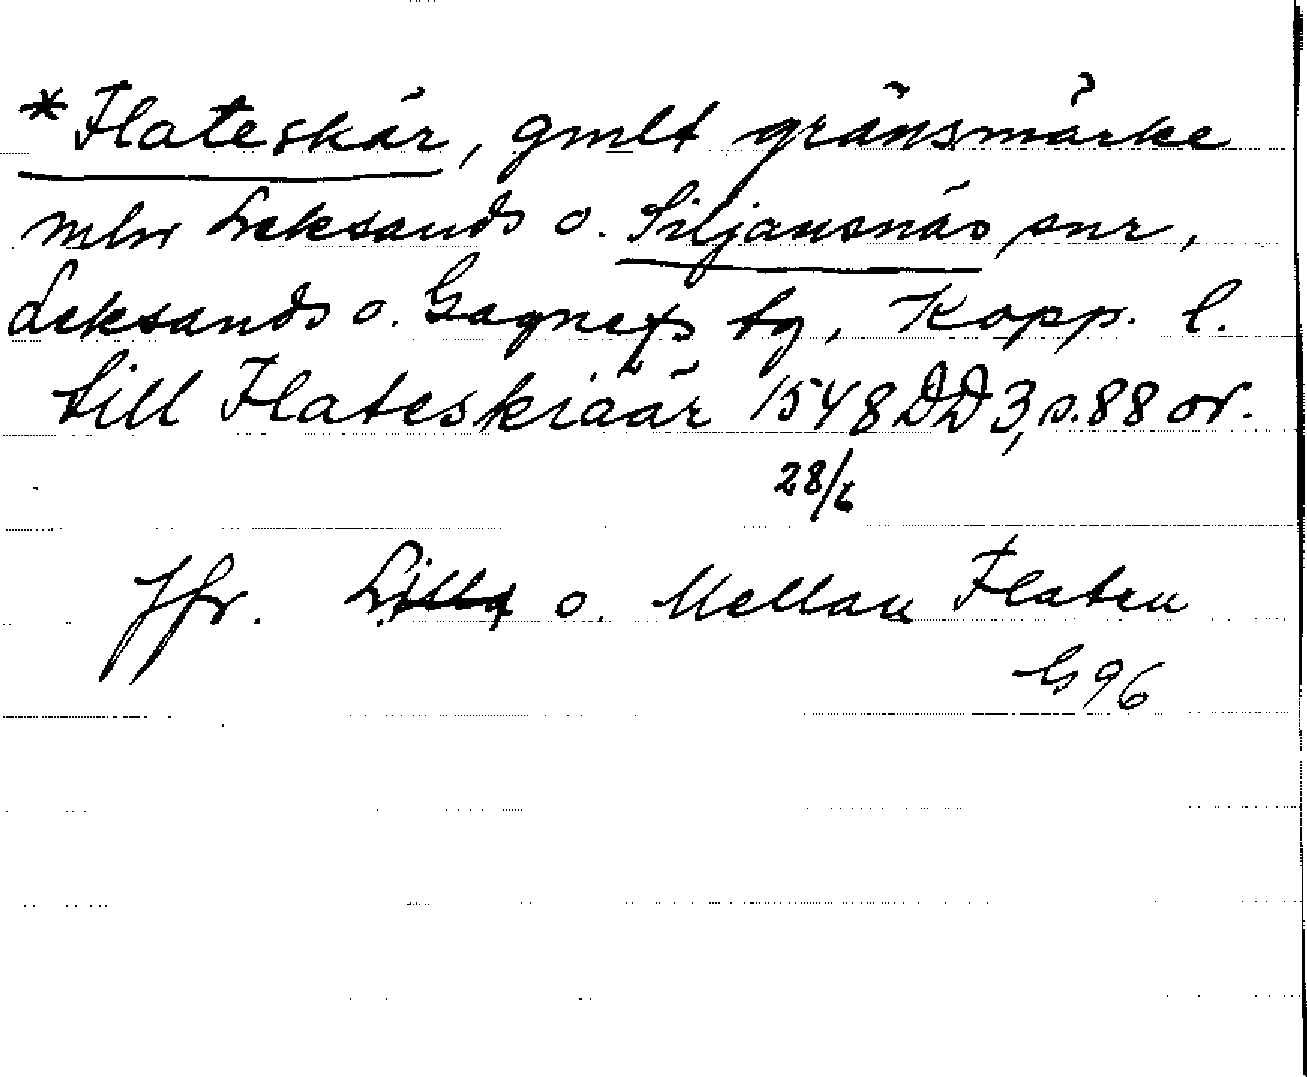 *Flateskär, gmlt gränsmärke
mln Leksands o. Siljansnäs snr,
Leksands o. Gagnefs tg, Kopp. l.
till Flateskiäär 1548 DD 3, s. 88 or.
28/6
Jfr. Lilla o. Mellan Flaten
G 96